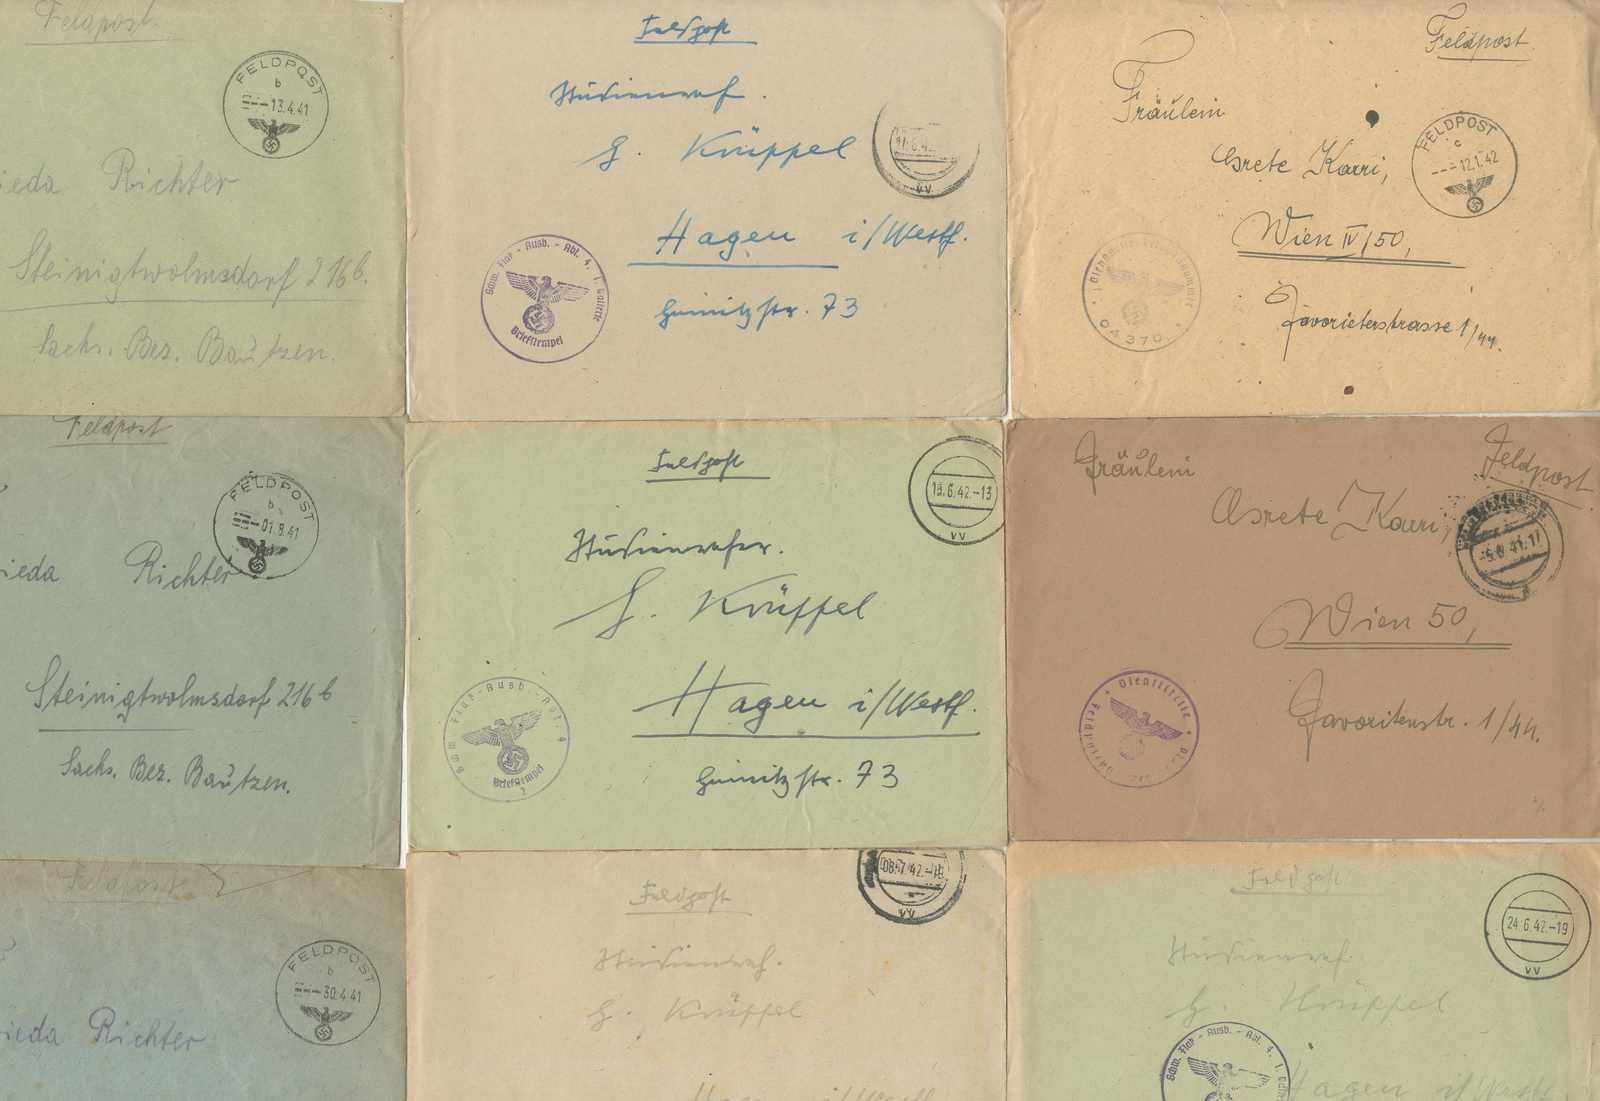 Feldpost
FELDPOST
b
13.4.41
ieda Richter
Steinigtwolmsdorf 216b.
Sachs. Bez. Bautzen.
Feldpost
Studienref.
G. Krüppel
Hagen i/Westf.
73
vv
Schw. Flak-Ausb.-Abt. 4, 1. Batterie
Briefstempel
Feldpost
Fräulein
Grete Karri,
Wien IV/50,
Favoritenstrasse 1/44.
FELDPOST
c
12.1.42
04370
Feldpost
FELDPOST
b
01.8.41
ieda Richter
Steinigtwolmsdorf 216b
Sachs. Bez. Bautzen.
Feldpost
19.6.42.-13
vv
G. Krüppel
Hagen i/Westf.
73
Schw. Flak-Ausb.-Abt. 4
Briefstempel
2
Fräulein
Feldpost
Grete Karri,
Wien 50,
Favoritenstr. 1/44.
Feldpost
FELDPOST
b
30.4.41
ieda Richter
08.7.42.-18
vv
Feldpost
Studienref.
G. Krüppel
Hagen i/Westf.
Feldpost
24.6.42.-19
vv
Studienref.
G. Krüppel
Hagen i/Westf.
Schw. Flak-Ausb.-Abt. 4, 1.